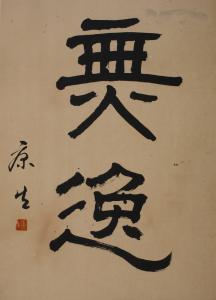 無逸
康生